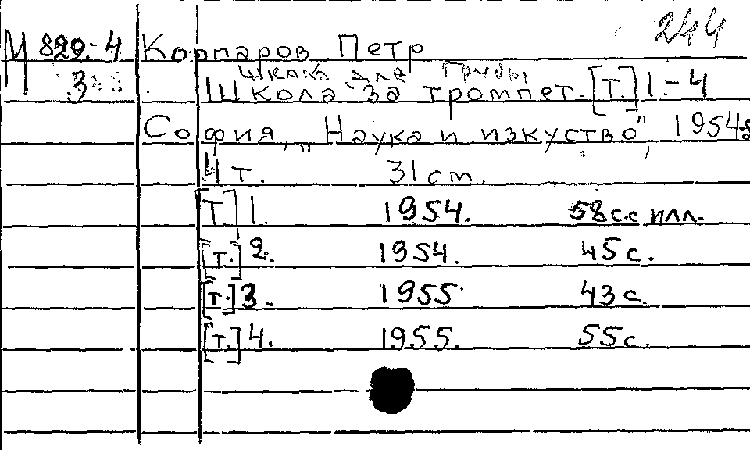 244
М 820-4 Корпаров Петр
3
Школа для трубы
Школа за тромпет. [Т.] 1-4
София, "Наука и изкуство", 1954-
4 т. 31 cm.
[Т.] 1. 1954. 58 с. с илл.
[т.] 2. 1954. 45 с.
[т.] 3. 1955 43 с.
[т.] 4. 1955. 55 с.